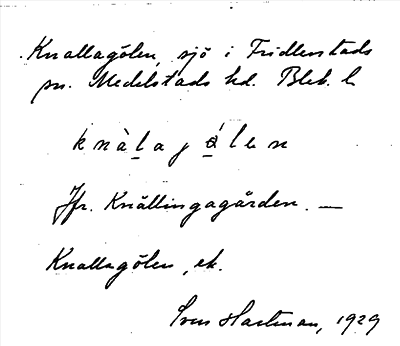 Knallagölen, sjö i Fridlevstads
sn. Medelstads hd. Blek. l
knàlagǿlen
Jfr. Knällingagården. —
Knallagölen, ek.
Sven Hartman, 1929